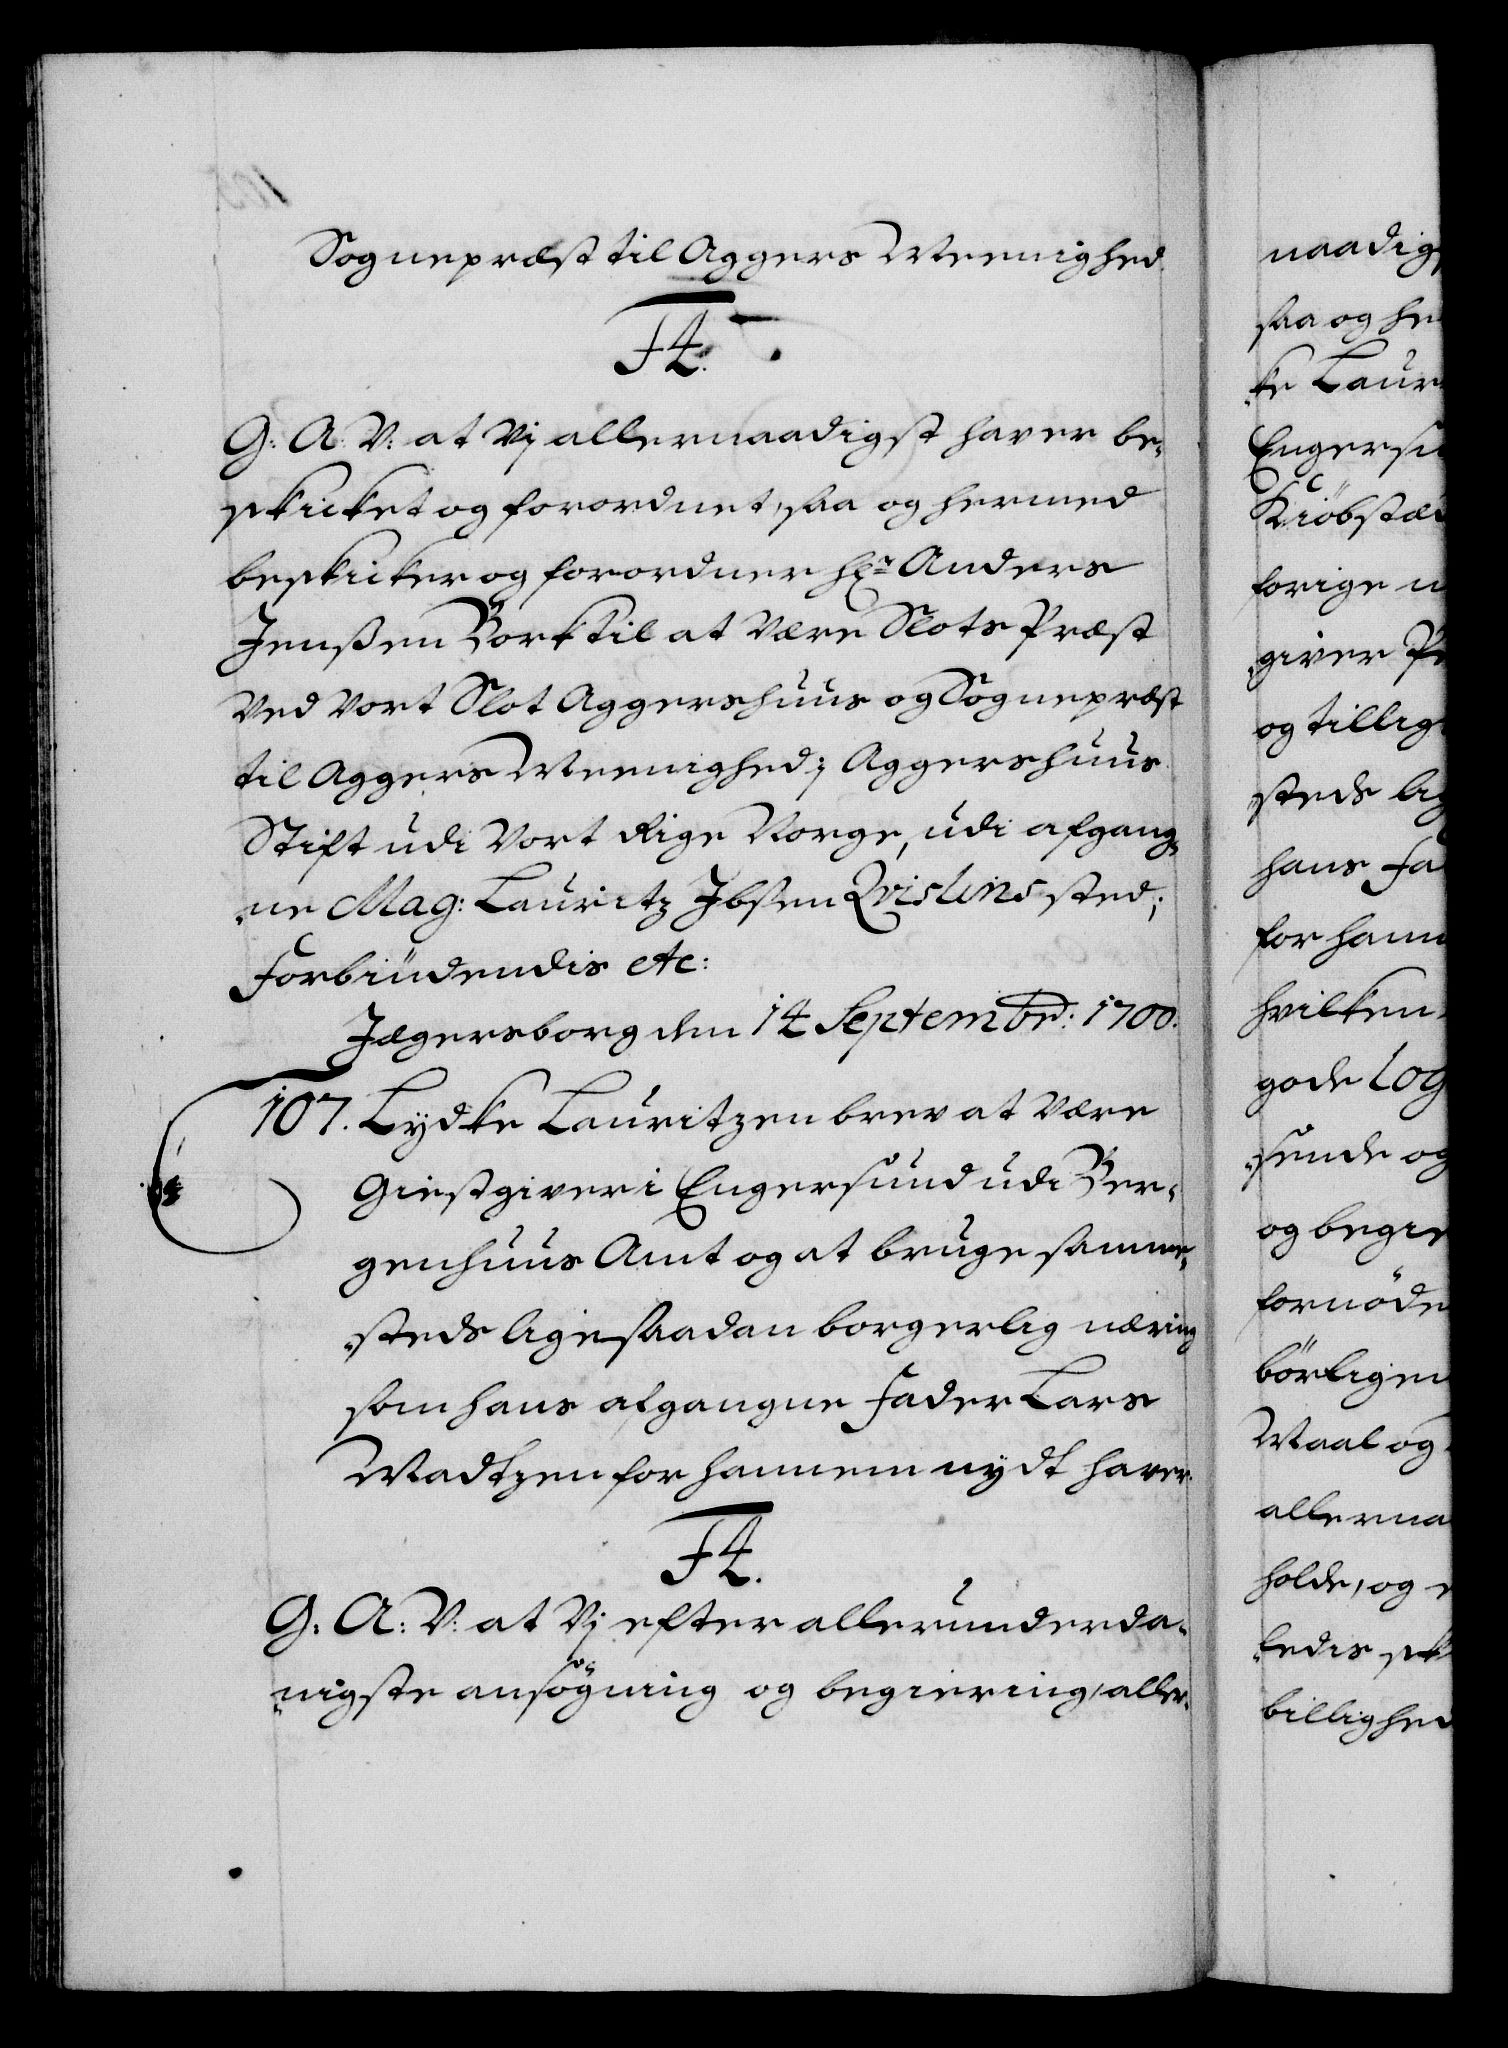 Sognepræst til Aggers Meenighed
F4.
G: A: V: at Vj allernaadigst haver be-
skicket og forordnet, saa og hermed
beskicker og forordner Hr Anders
Jenßen Bork til at være Slots Præst
ved vort Slot Aggershuus og Sognepræst
til Aggers Meenighed i Aggershuus
Stift udi Vort Rige Norge, udi afgang-
ne Mag: Lauritz Ibsen Qvislins sted;
Forbiudendis etc:
Jægersborg den 14 Septembr: 1700.
107. Lydke Lauritzen brev at være
Giestgiver i Engersund udi Ber-
genhuus Amt og at bruge samme-
steds lige saadan borgerlig næring
som hans afgangne Fader Lars
Madtzen for hannem nydt haver.
F4.
G: A: V: at Vj efter allerunderda-
nigste ansøgning og begiering, aller-
naadigs
saa og he
ke Laur
Engersu
Kiøbstæd
forige
giver
og tillig
steds lig
hans Fa
for hann
hvilken
gode log
sende og
og begie
fornøde
børligen
Maal og
allerna
holde, og
ledis sk
billighed